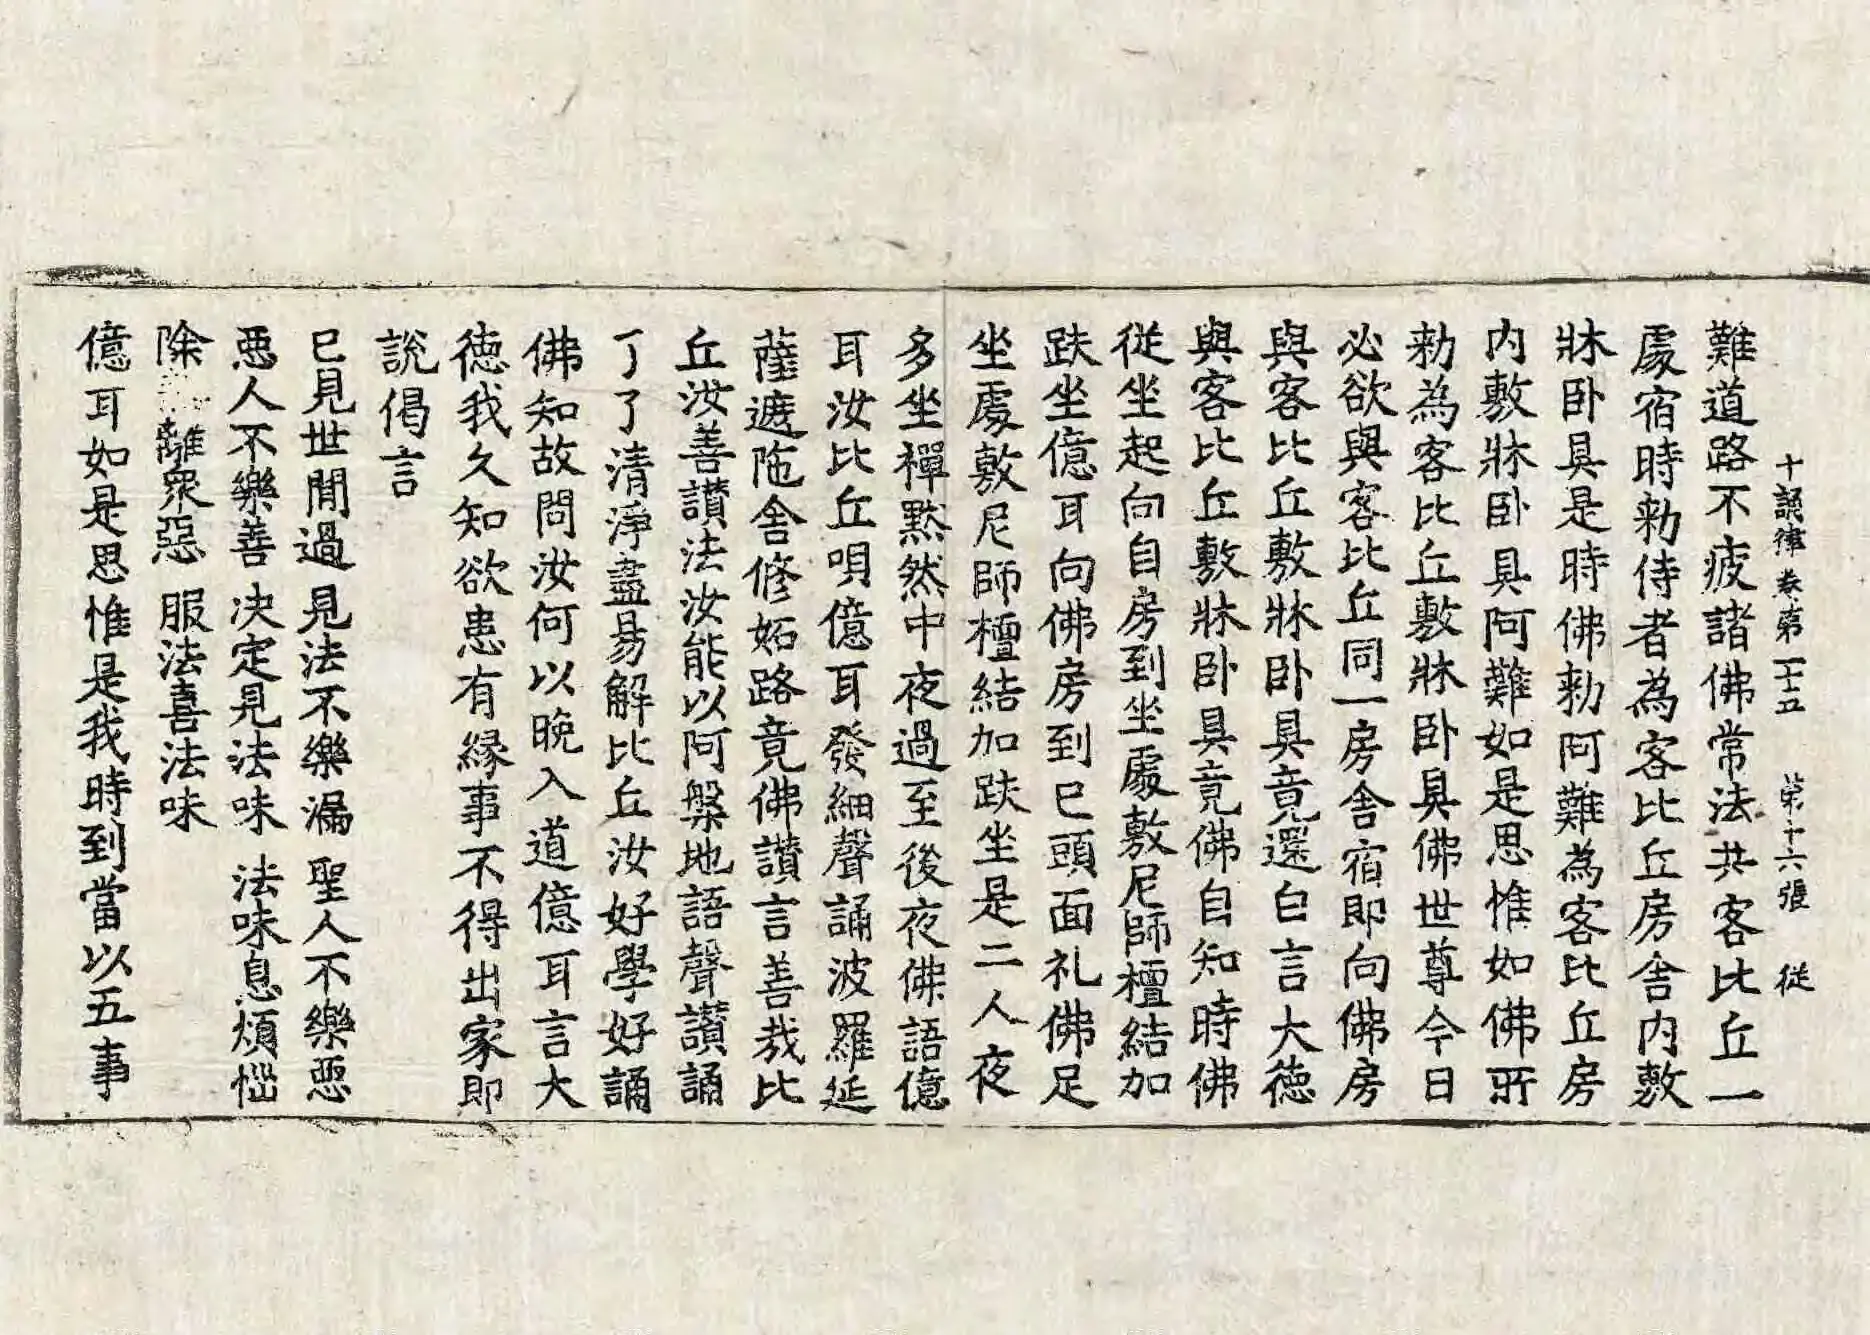 十誦律卷第二十五 第十六張 従
難道路不疲諸佛常法共客比丘一
處宿時勑侍者為客比丘房舎内敷
牀卧具是時佛勑阿難為客比丘房
内敷牀卧具阿難如是思惟如佛所
勑為客比丘敷牀卧具佛世尊今日
必欲與客比丘同一房舎宿即向佛房
與客比丘敷牀卧具竟還白言大徳
與客比丘敷牀卧具竟佛自知時佛
従坐起向自房到坐處敷尼師檀結加
趺坐億耳向佛房到已頭面礼佛足
坐處敷尼師檀結加趺坐是二人夜
多坐禪黙然中夜過至後夜佛語億
耳汝比丘唄億耳發細聲誦波羅延
薩遮陁舎修妬路竟佛讃言善㢤比
丘汝善讃法汝能以阿槃地語聲讃誦
了了清淨盡易解比丘汝好學好誦
佛知故問汝何以晚入道億耳言大
徳我久知欲患有縁事不得出家即
說偈言
已見世閒過 見法不樂漏 聖人不樂惡
惡人不樂善 决定見法味 法味息煩惱
除 離衆惡 服法喜法味
億耳如是思惟是我時到當以五事